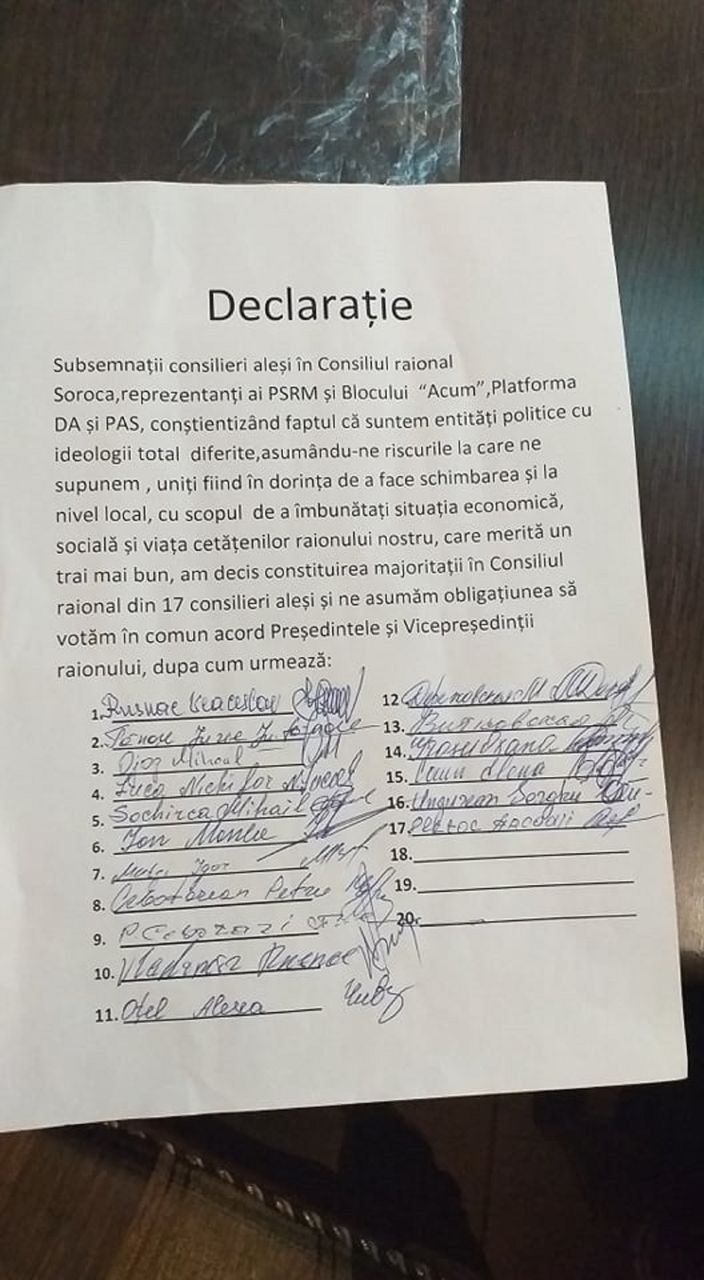 Declarație
Subsemnații consilieri aleși în Consiliul raional
Soroca,reprezentanți ai PSRM și Blocului “Acum”,Platforma
DA și PAS, conștientizând faptul că suntem entități politice cu
ideologii total diferite,asumându-ne riscurile la care ne
supunem , uniți fiind în dorința de a face schimbarea și la
nivel local, cu scopul de a îmbunătați situația economică,
socială și viața cetățenilor raionului nostru, care merită un
trai mai bun, am decis constituirea majoritații în Consiliul
raional din 17 consilieri aleși și ne asumăm obligațiunea să
votăm în comun acord Președintele și Vicepreședinții
raionului, dupa cum urmează:
1. Rusnac Veaceslav
2.
3. Mihail
4. Nichifor
5. Sochirca Mihail
6. Ion
7. Igor
8. Petru
9.
10. Vladimir
11. Oțel
12
13.
14.
15.
16.
17.
18.
19.
20.